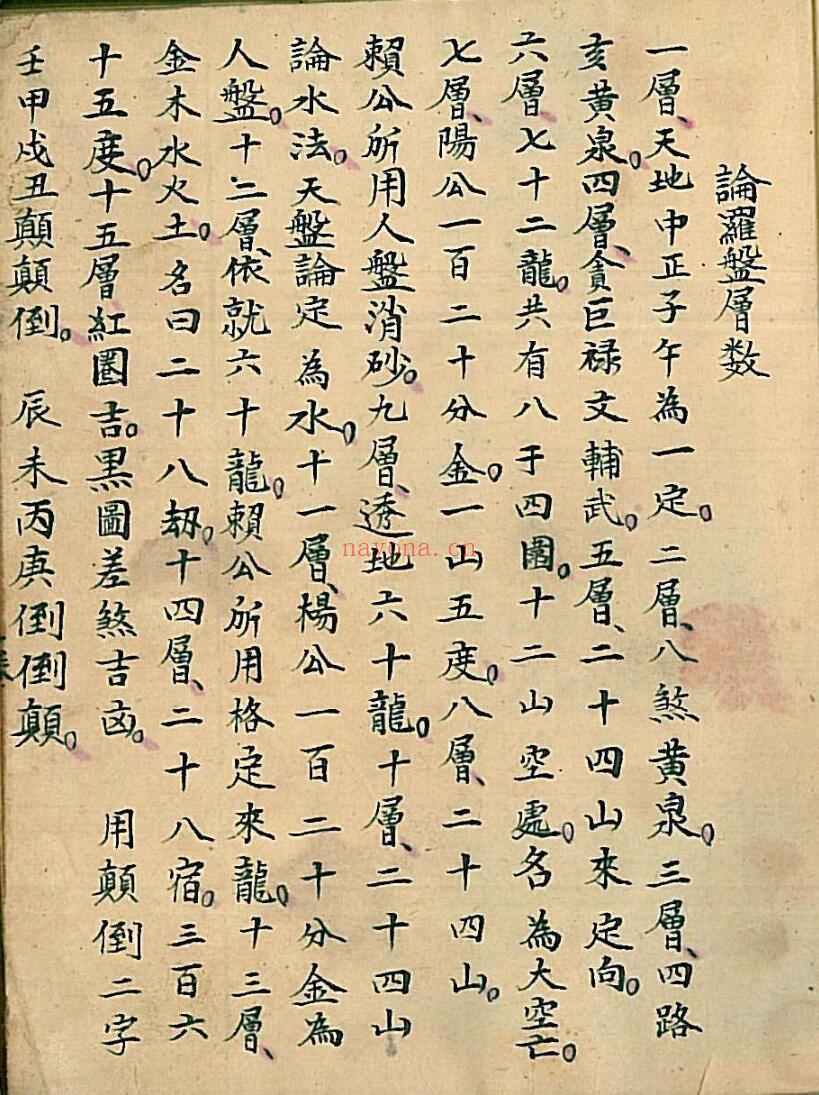 論羅盤層数
一層、天地中正子午為一定。二層、八煞黄泉。三層、四路
亥黄泉。四層、貪巨禄文輔武。五層、二十四山來定向。
六層、七十二龍。共有八于四圍。十二山空處。名為大空亡。
七層、陽公一百二十分金。一山五度。八層、二十四山。
賴公所用人盤消砂。九層、透地六十龍。十層、二十四山
論水法。天盤論定為水。十一層、楊公一百二十分金為
人盤。十二層、依就六十龍。賴公所用格定來龍。十三層、
金木水火土。名曰二十八劫。十四層、二十八宿。三百六
十五度。十五層紅圈吉。黒圖差煞吉凶。 用顛倒二字
壬甲戍丑顛顛倒。 辰未丙庚倒倒顛。
nayona.cn